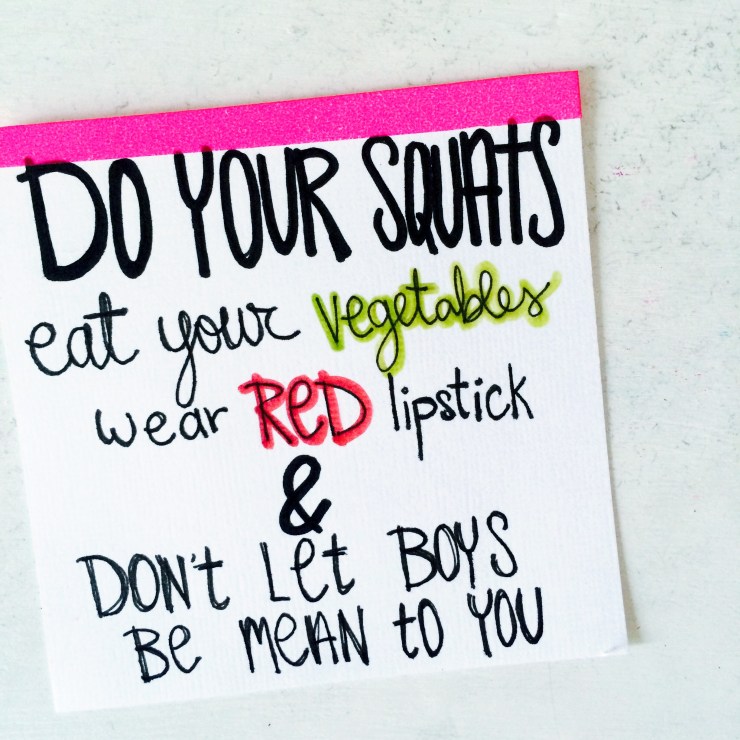 DO YOUR SQUATS
eat your vegetables
wear RED lipstick
&
DON't Let BOYS
Be MeAN to YOU